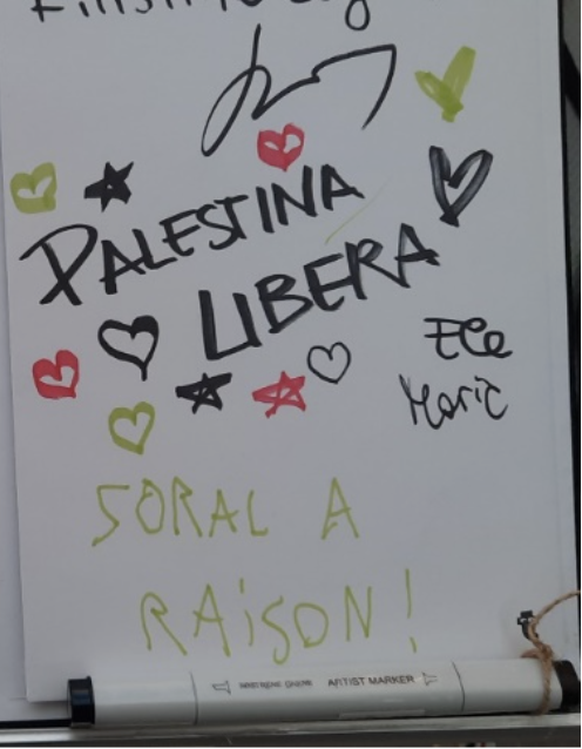 PALESTINA
LIBERA
Ele
SORAL A
RAiSON!
ARTIST MARKER